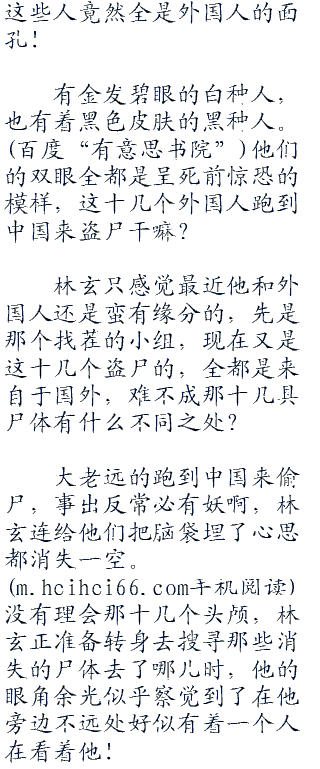 这些人竟然全是外国人的面
孔！
有金发碧眼的白种人，
也有着黑色皮肤的黑种人。
(百度“有意思书院”)他们
的双眼全都是呈死前惊恐的
模样，这十几个外国人跑到
中国来盗尸干嘛？
林玄只感觉最近他和外
国人还是蛮有缘分的，先是
那个找茬的小组，现在又是
这十几个盗尸的，全都是来
自于国外，难不成那十几具
尸体有什么不同之处？
大老远的跑到中国来偷
尸，事出反常必有妖啊，林
玄连给他们把脑袋埋了心思
都消失一空。
(m.hcihci66.com手机阅读)
没有理会那十几个头颅，林
玄正准备转身去搜寻那些消
失的尸体去了哪儿时，他的
眼角余光似乎察觉到了在他
旁边不远处好似有着一个人
在看着他！